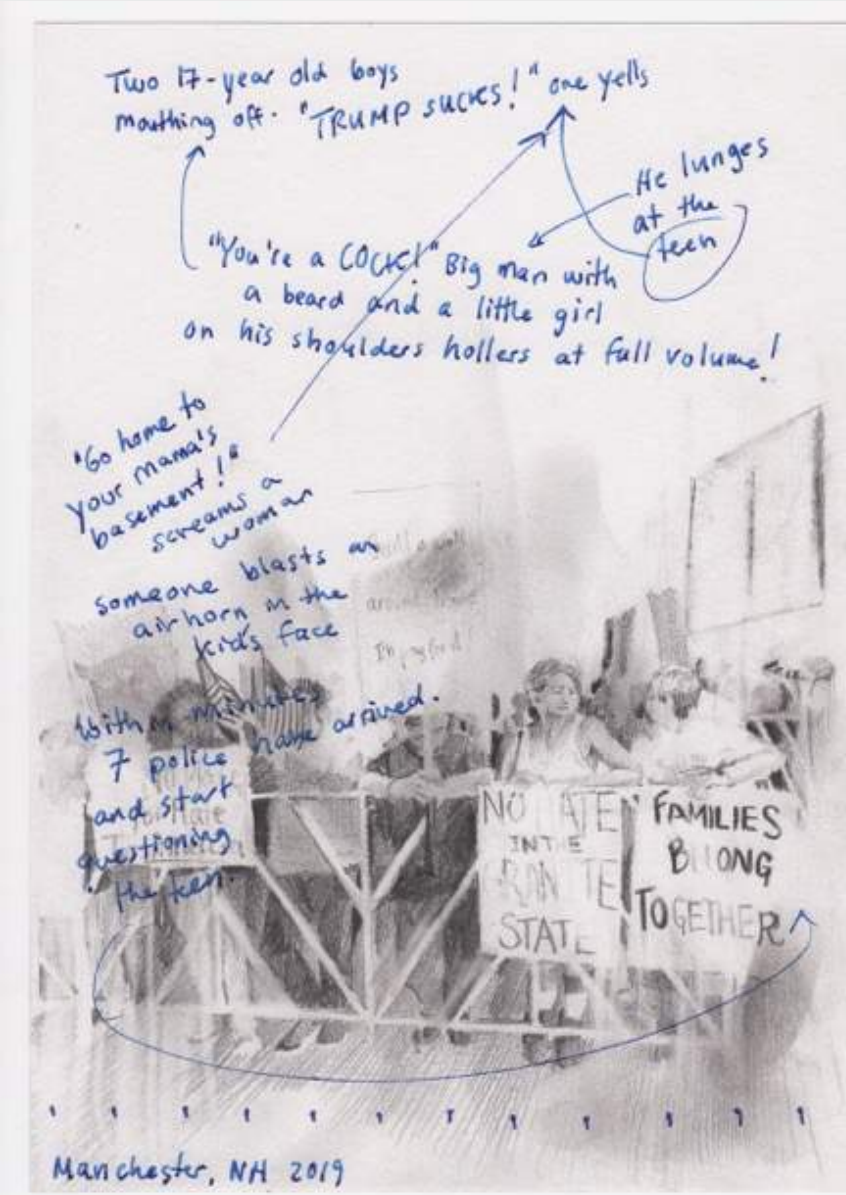 Two 17-year old boys
mouthing off. "TRUMP SUCKS!" one yells
He lunges
at the
teen
"You're a COCK!" Big man with
a beard and a little girl
on his shoulders hollers at full volume!
"Go home to
your mama's
basement!"
screams a
woman
someone blasts an
airhorn in the
kid's face
Within minutes
7 police have arrived.
and start
questioning
the teen.
a wall
around
NO HATE
IN THE
GRANITE
STATE
FAMILIES
BELONG
TOGETHER
Manchester, NH 2019